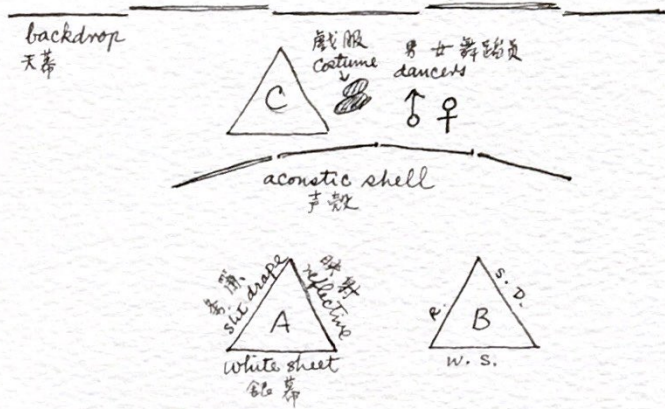 backdrop
天幕
戲服
costume
男女舞蹈员
dancers
C
acoustic shell
声殼
slit drape
reflective
A
white sheet
銀幕
R.
S. D.
B
W. S.